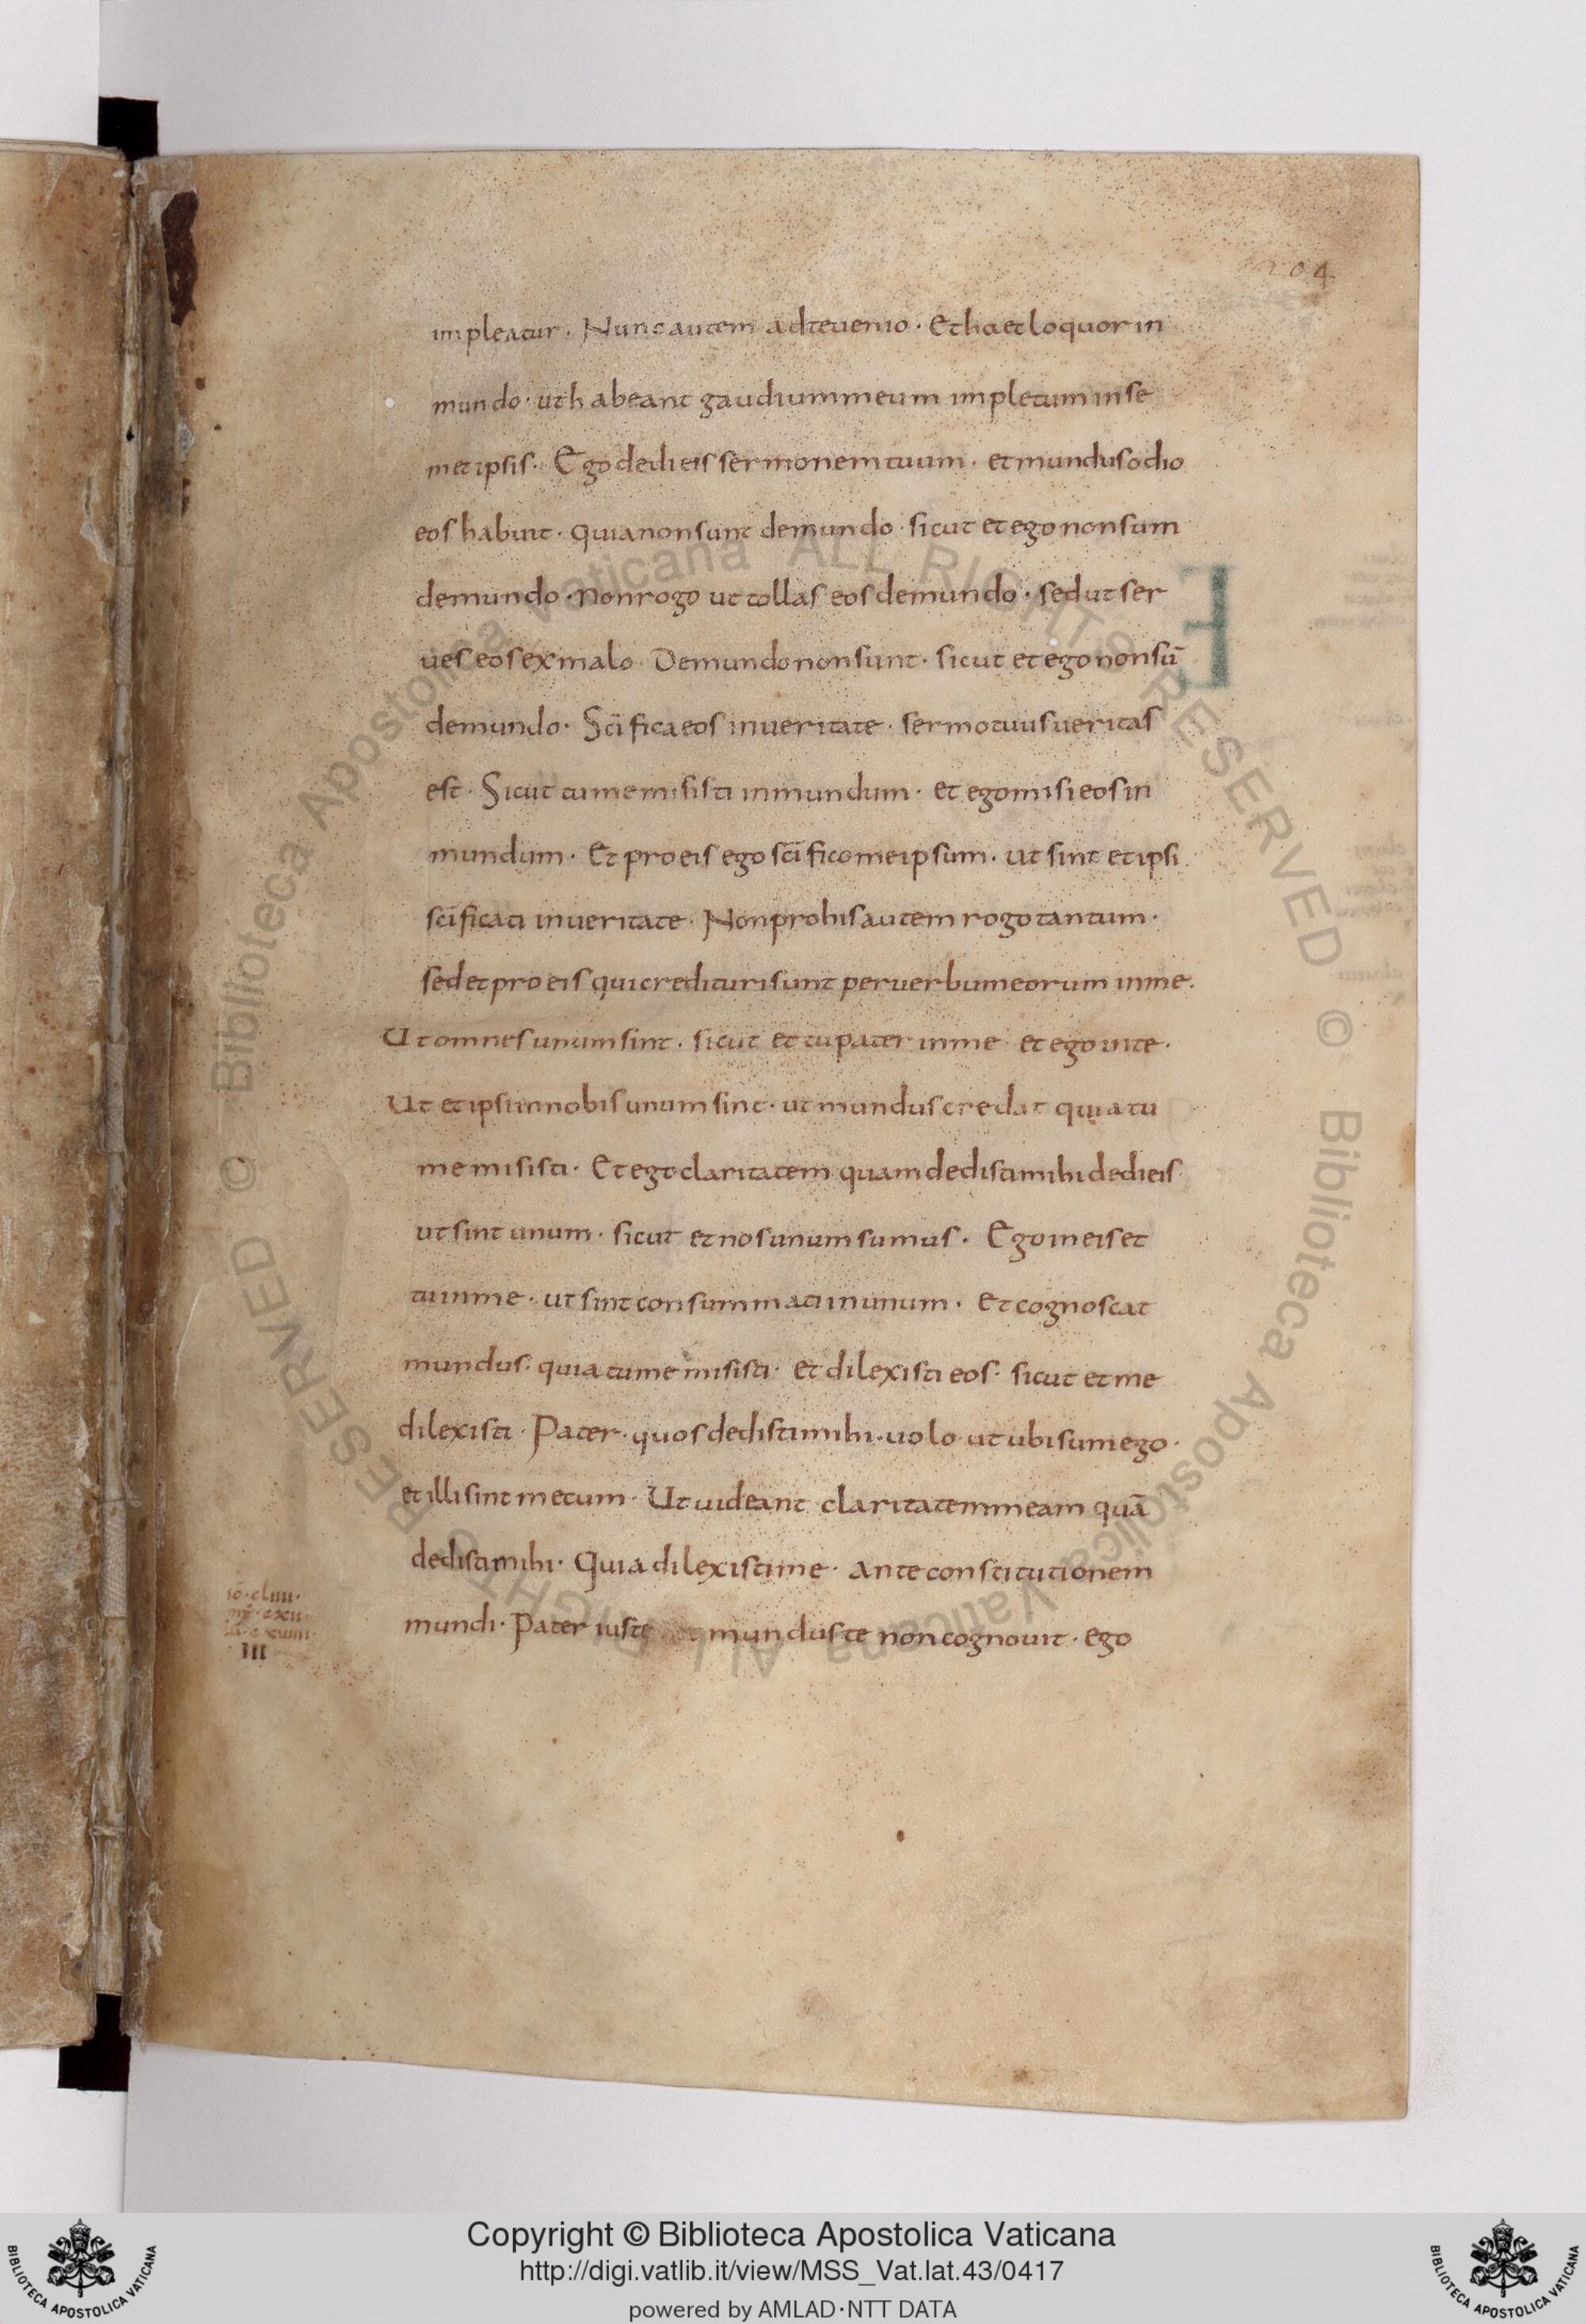 204
impleatur. Nunc autem ad te uenio. Et haec loquor in
mundo. ut habeant gaudium meum impletum in se
metipsis. Ego dedi eis sermonem tuum. et mundus odio
eos habuit. quia non sunt de mundo. sicut et ego non sum
de mundo. non rogo ut tollas eos de mundo. sed ut ser
ues eos ex malo. De mundo non sunt. sicut et ego non sū
de mundo. Sc̄ifica eos in ueritate. sermo tuus ueritas
est. Sicut tu me misisti in mundum. et ego misi eos in
mundum. Et pro eis ego sc̄ifico me ipsum. ut sint et ipsi
sc̄ificati in ueritate. Non pro his autem rogo tantum.
sed et pro eis qui credituri sunt per uerbum eorum in me.
Ut omnes unum sint. sicut et tu pater in me et ego in te.
Ut et ipsi in nobis unum sint. ut mundus credat quia tu
me misisti. Et ego claritatem quam dedisti mihi dedi eis
ut sint unum. sicut et nos unum sumus. Ego in eis et
tu in me. ut sint consummati in unum. et cognoscat
mundus. quia tu me misisti. et dilexisti eos. sicut et me
dilexisti. Pater. quos dedisti mihi. uolo ut ubi sum ego.
et illi sint mecum. Ut uideant claritatem meam quā
dedisti mihi. Quia dilexisti me. ante constitutionem
mundi. Pater iuste mundus te non cognouit. ego
III
© Biblioteca Apostolica Vaticana ALL RIGHTS RESERVED © Biblioteca Apostolica Vaticana ALL RIGHTS RESERVED
Copyright © Biblioteca Apostolica Vaticana
http://digi.vatlib.it/view/MSS_Vat.lat.43/0417
powered by AMLAD·NTT DATA
BIBLIOTECA APOSTOLICA VATICANA
BIBLIOTECA APOSTOLICA VATICANA